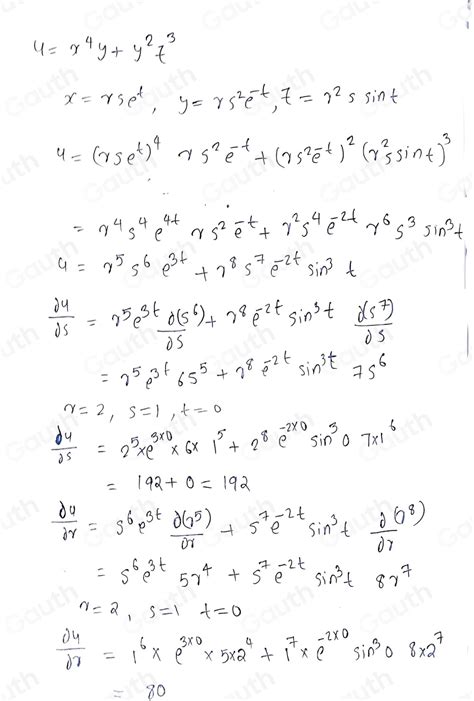 u = x⁴y + y²z³
x = rse^t, y = rs²e^-t, z = r²s sint
u = (rse^t)⁴ rs²e^-t + (rs²e^-t)² (r²s sint)³
= r⁴s⁴e^4t rs²e^-t + r²s⁴e^-2t r⁶s³ sin³t
u = r⁵s⁶e^3t + r⁸s⁷e^-2t sin³t
∂u/∂s = r⁵e^3t ∂(s⁶)/∂s + r⁸e^-2t sin³t ∂(s⁷)/∂s
= r⁵e^3t 6s⁵ + r⁸e^-2t sin³t 7s⁶
r=2, s=1, t=0
∂u/∂s = 2⁵×e^3×0 × 6×1⁵ + 2⁸e^-2×0 sin³0 7×1⁶
= 192+0 = 192
∂u/∂r = s⁶e^3t ∂(r⁵)/∂r + s⁷e^-2t sin³t ∂(r⁸)/∂r
= s⁶e^3t 5r⁴ + s⁷e^-2t sin³t 8r⁷
r=2, s=1 t=0
∂u/∂r = 1⁶× e^3×0 ×5×2⁴ + 1⁷×e^-2×0 sin³0 8×2⁷
= 80